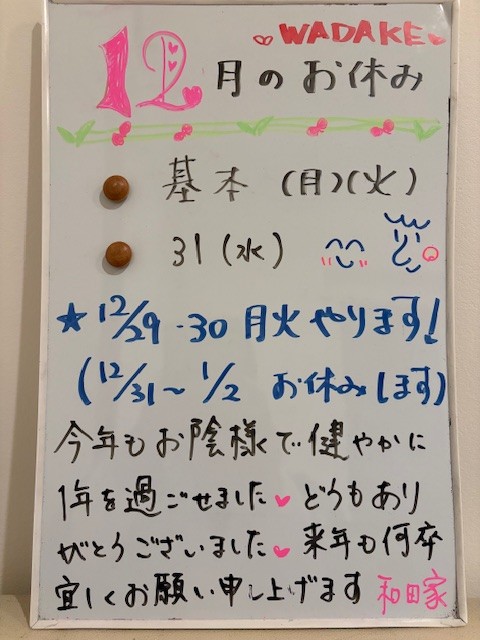 WADAKE
12月のお休み
基本 (月)(火)
31(水)
★12/29・30 月火やります!
(12/31〜1/2 お休みします)
今年もお陰様で健やかに
1年を過ごせました♥どうもあり
がとうございました♥来年も何卒
宜しくお願い申し上げます 和田家